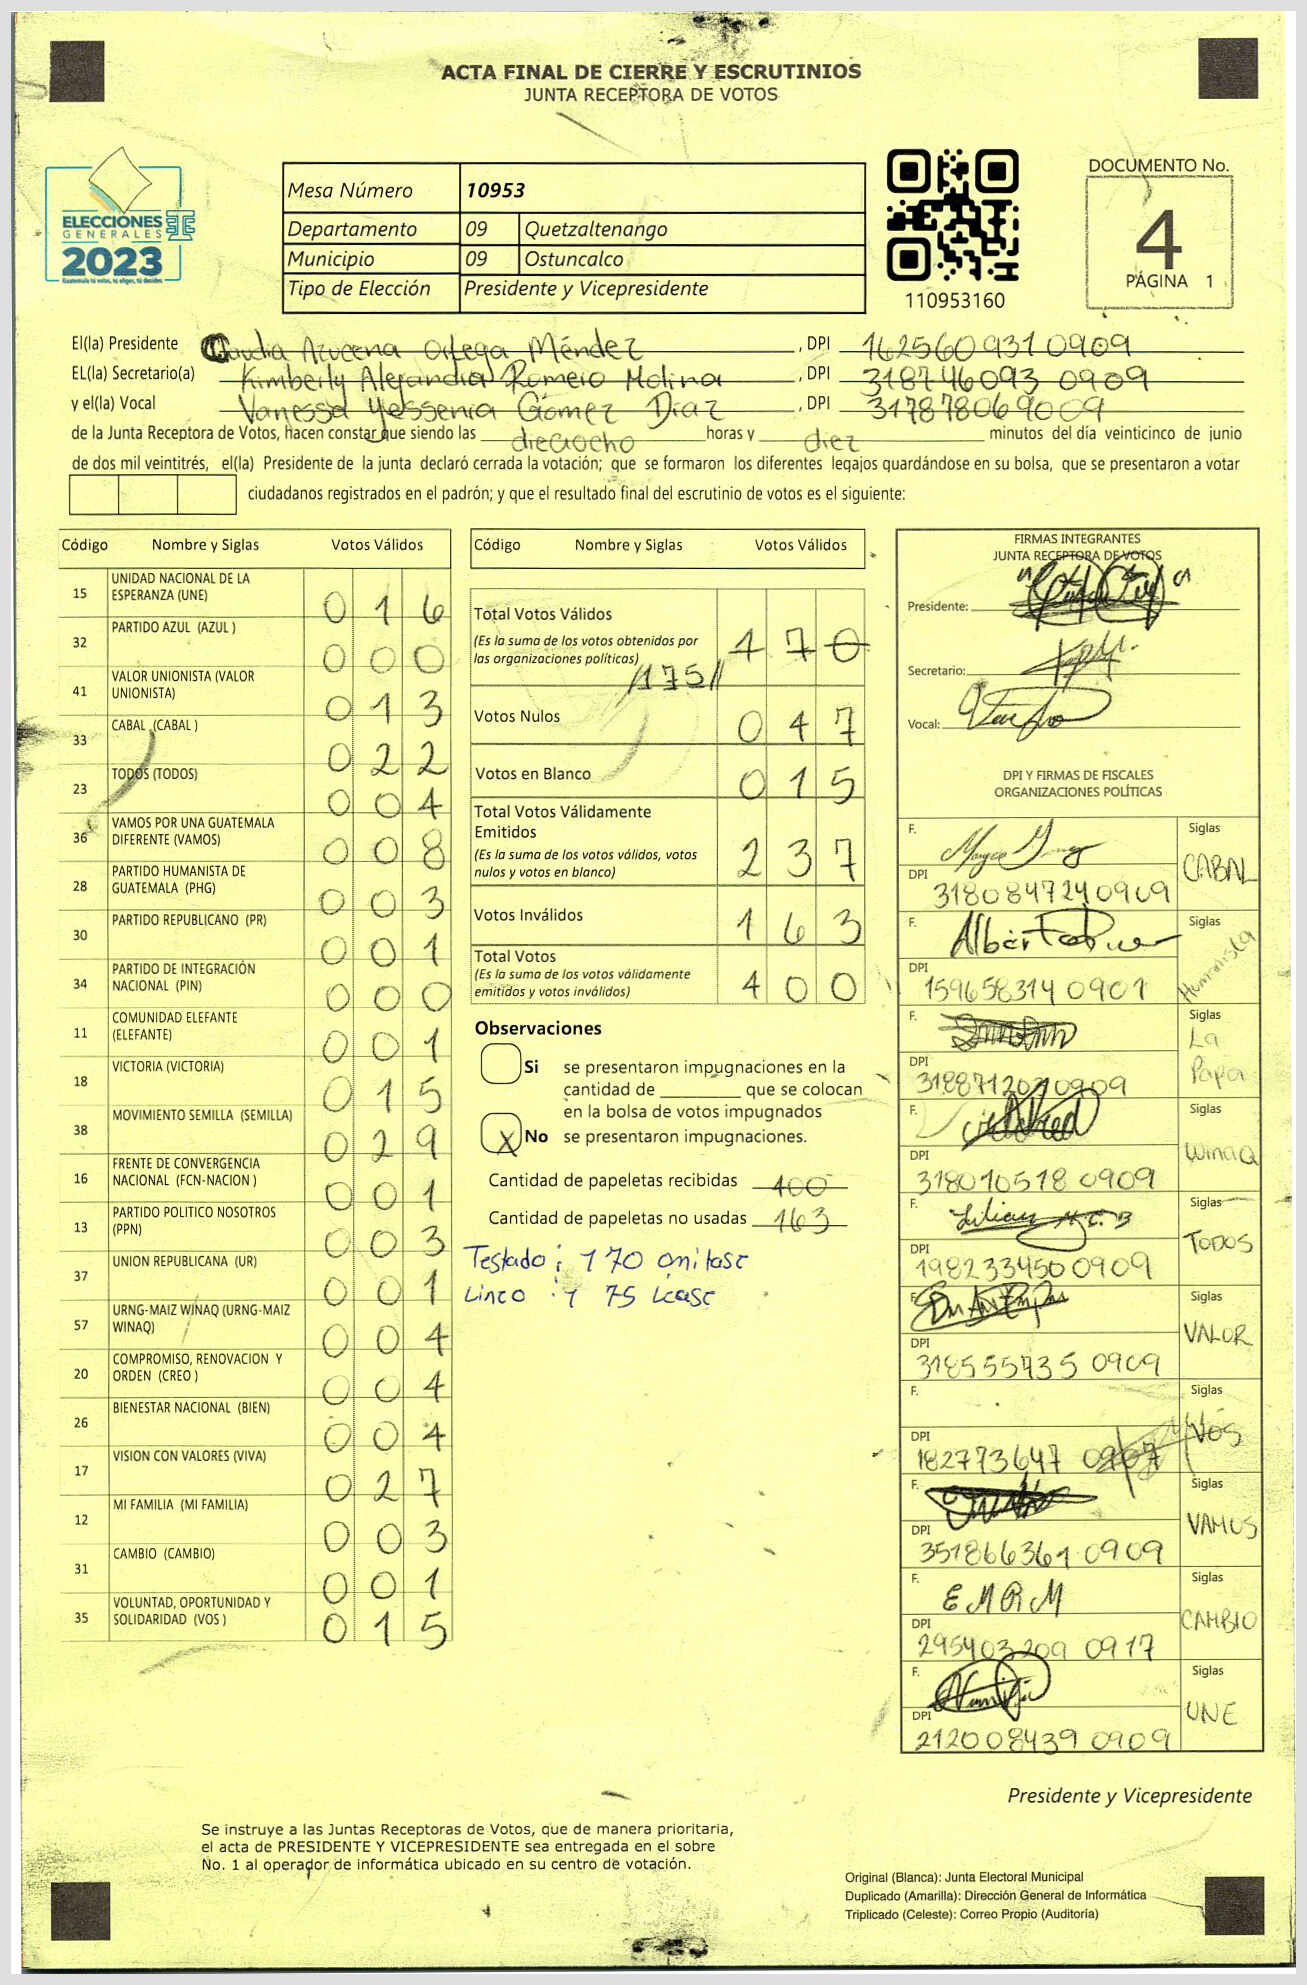 ACTA FINAL DE CIERRE Y ESCRUTINIOS
JUNTA RECEPTORA DE VOTOS
ELECCIONES
GENERALES
2023
Guatemala tú votas, tú eliges, tú decides
Mesa Número 10953
Departamento 09 Quetzaltenango
Municipio 09 Ostuncalco
Tipo de Elección Presidente y Vicepresidente
110953160
DOCUMENTO No.
4
PÁGINA 1
El(la) Presidente Claudia Azucena Ortega Méndez, DPI 1625609310909
EL(la) Secretario(a) Kimberly Alejandra Romero Molina, DPI 318746093 0909
y el(la) Vocal Vanessa Yessenia Gómez Díaz, DPI 3178780690009
de la Junta Receptora de Votos, hacen constar que siendo las dieciocho horas y diez minutos del día veinticinco de junio
de dos mil veintitrés, el(la) Presidente de la junta declaró cerrada la votación; que se formaron los diferentes legajos guardándose en su bolsa, que se presentaron a votar
ciudadanos registrados en el padrón; y que el resultado final del escrutinio de votos es el siguiente:
Código Nombre y Siglas Votos Válidos
15 UNIDAD NACIONAL DE LA ESPERANZA (UNE) 016
32 PARTIDO AZUL (AZUL ) 000
41 VALOR UNIONISTA (VALOR UNIONISTA) 013
33 CABAL (CABAL ) 022
23 TODOS (TODOS) 004
36 VAMOS POR UNA GUATEMALA DIFERENTE (VAMOS) 008
28 PARTIDO HUMANISTA DE GUATEMALA (PHG) 003
30 PARTIDO REPUBLICANO (PR) 001
34 PARTIDO DE INTEGRACIÓN NACIONAL (PIN) 000
11 COMUNIDAD ELEFANTE (ELEFANTE) 001
18 VICTORIA (VICTORIA) 015
38 MOVIMIENTO SEMILLA (SEMILLA) 029
16 FRENTE DE CONVERGENCIA NACIONAL (FCN-NACION ) 001
13 PARTIDO POLITICO NOSOTROS (PPN) 003
37 UNION REPUBLICANA (UR) 001
57 URNG-MAIZ WINAQ (URNG-MAIZ WINAQ) 004
20 COMPROMISO, RENOVACION Y ORDEN (CREO ) 004
26 BIENESTAR NACIONAL (BIEN) 004
17 VISION CON VALORES (VIVA) 027
12 MI FAMILIA (MI FAMILIA) 003
31 CAMBIO (CAMBIO) 001
35 VOLUNTAD, OPORTUNIDAD Y SOLIDARIDAD (VOS ) 015
Código Nombre y Siglas Votos Válidos
Total Votos Válidos 170
(Es la suma de los votos obtenidos por
las organizaciones políticas)
/175//
Votos Nulos 047
Votos en Blanco 015
Total Votos Válidamente
Emitidos 237
(Es la suma de los votos válidos, votos
nulos y votos en blanco)
Votos Inválidos 163
Total Votos 400
(Es la suma de los votos válidamente
emitidos y votos inválidos)
Observaciones
Si se presentaron impugnaciones en la
cantidad de ________ que se colocan
en la bolsa de votos impugnados
X No se presentaron impugnaciones.
Cantidad de papeletas recibidas 400
Cantidad de papeletas no usadas 163
Testado: 170 omitase
Linco : 1 75 Lease
FIRMAS INTEGRANTES
JUNTA RECEPTORA DE VOTOS
Presidente:
Secretario:
Vocal:
DPI Y FIRMAS DE FISCALES
ORGANIZACIONES POLÍTICAS
F. Siglas CABAL
DPI 3180847240909
F. Siglas Humanista
DPI 159658314 0901
F. Siglas La Papa
DPI 3188712070909
F. Siglas WINAQ
DPI 318010518 0909
F. Lilian M. C. B Siglas TODOS
DPI 1982334500909
F. Siglas VALOR
DPI 318555735 0909
F. Siglas VOS
DPI 182773647 0907
F. Siglas VAMOS
DPI 351866361 0909
F. E M R M Siglas CAMBIO
DPI 295403209 0917
F. Siglas UNE
DPI 212008439 0909
Presidente y Vicepresidente
Se instruye a las Juntas Receptoras de Votos, que de manera prioritaria,
el acta de PRESIDENTE Y VICEPRESIDENTE sea entregada en el sobre
No. 1 al operador de informática ubicado en su centro de votación.
Original (Blanca): Junta Electoral Municipal
Duplicado (Amarilla): Dirección General de Informática
Triplicado (Celeste): Correo Propio (Auditoría)